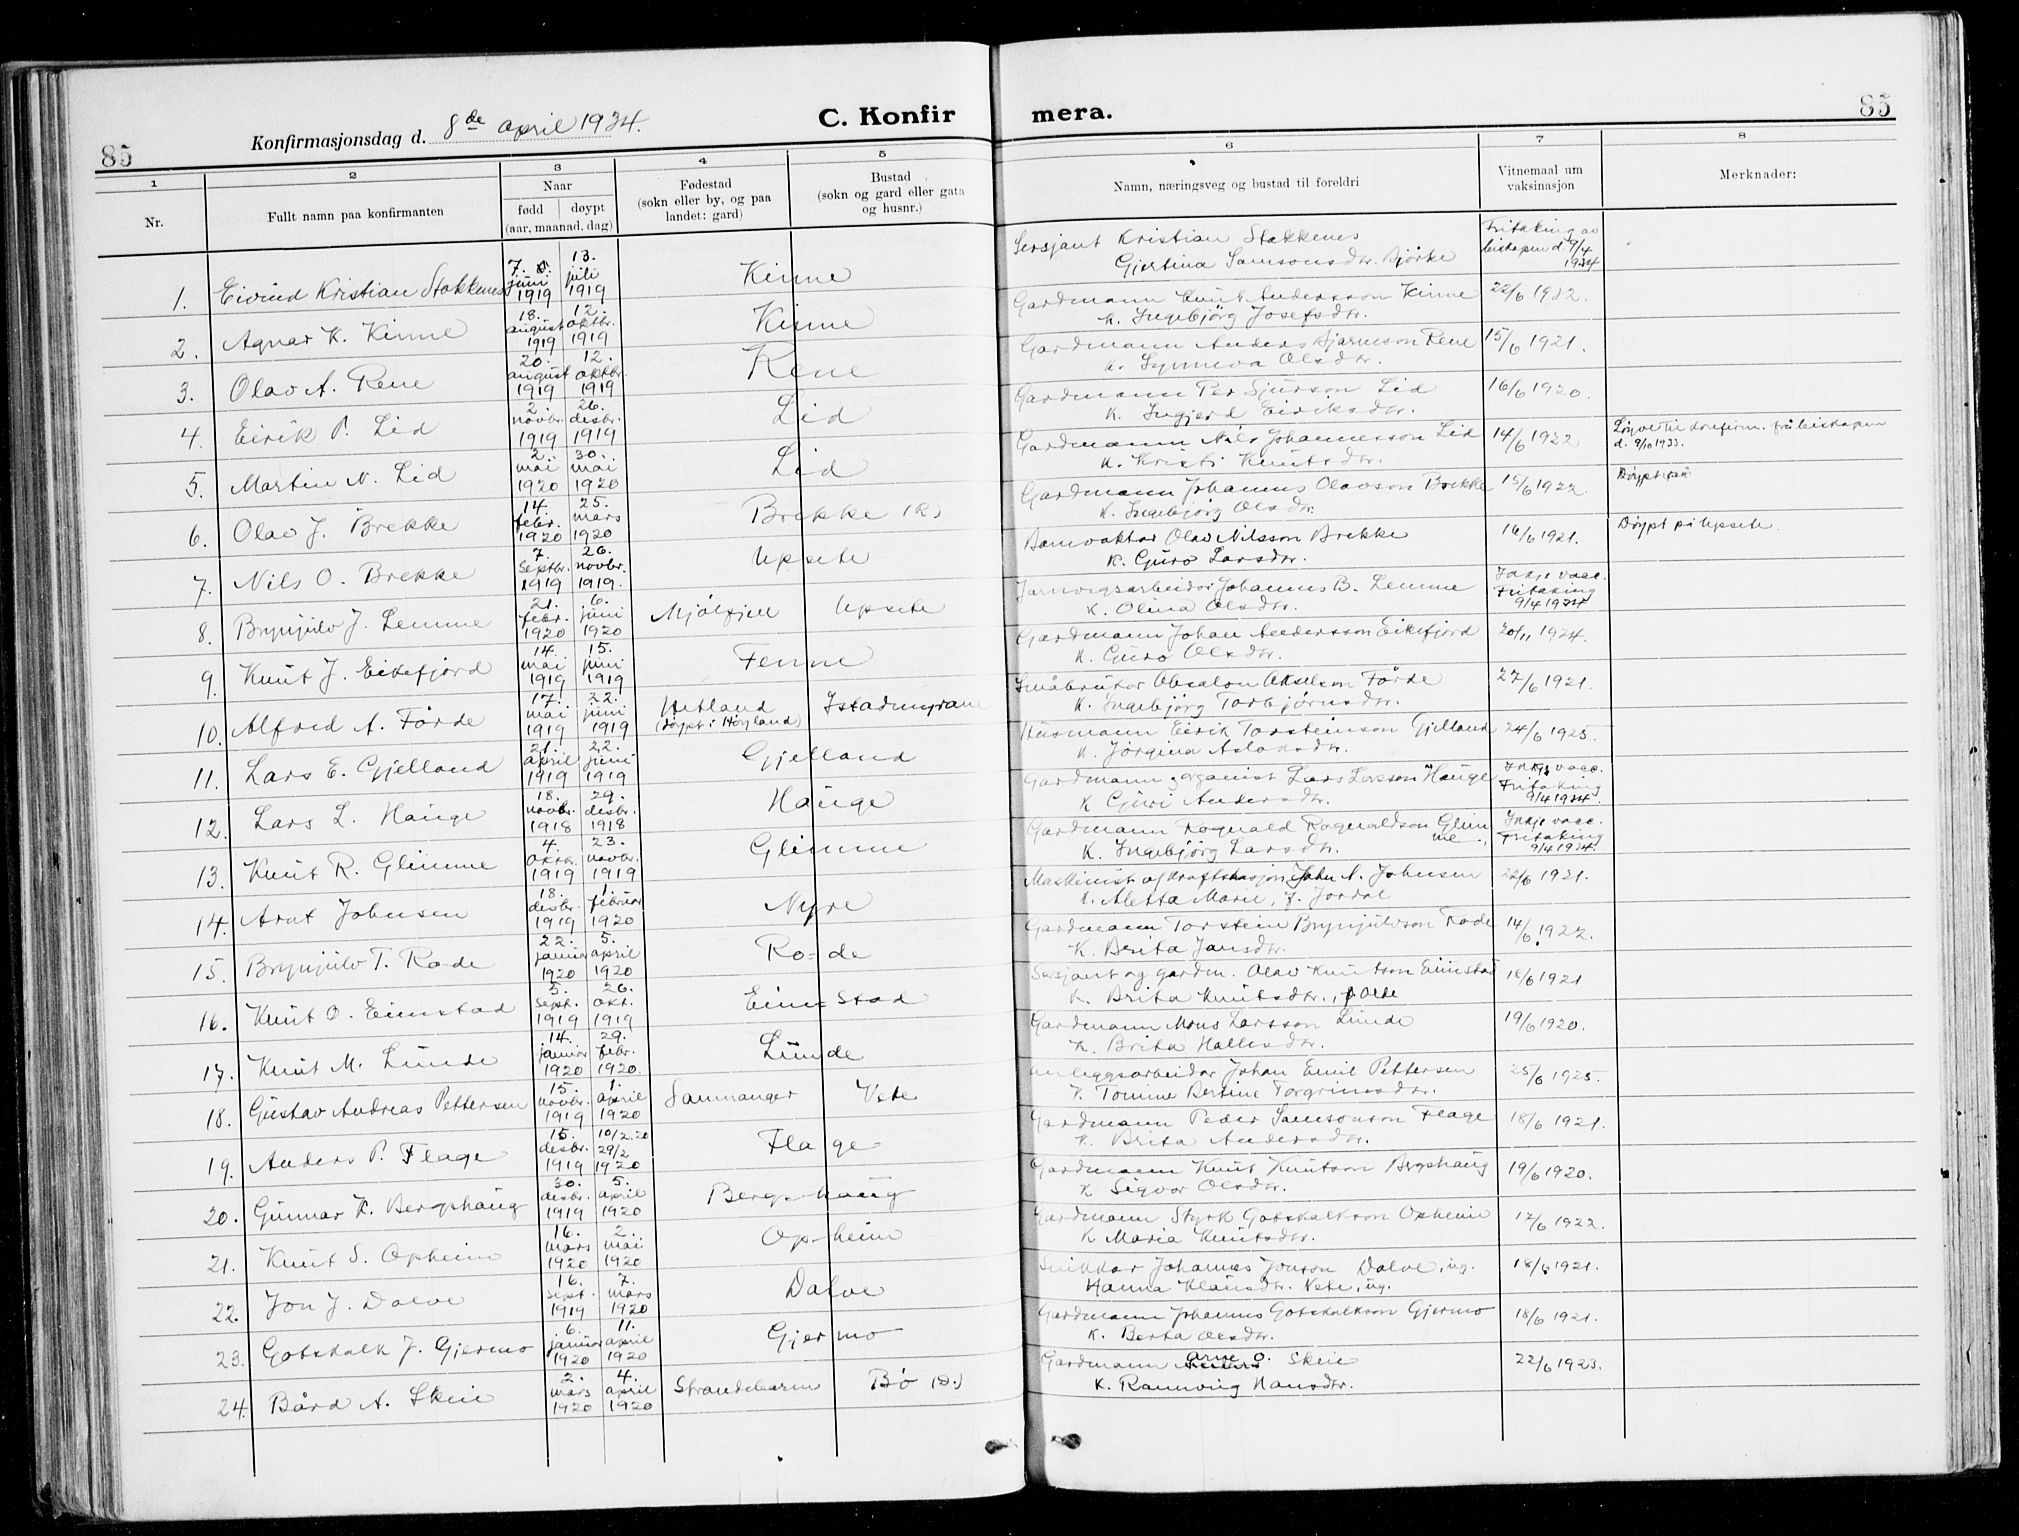 85
Konfirmasjonsdag d. 8de april 1934.
C. Konfirmera.
85
1 2 3 4 5 6 7 8
Nr.
Fullt namn paa konfirmanten
Naar
fødd døypt
(aar, maanad, dag)
Fødestad
(sokn eller by, og paa
landet: gard)
Bustad
(sokn og gard eller gata
og husnr.)
Namn, næringsveg og bustad til foreldri
Vitnemaal um
vaksinasjon
Merknader:
1. Eivind Kristian Stakkenes 7. juni 1919 13. juli 1919 Kinne
Sersjant Kristian Stakkenes Fritaking av
Gjertina Samsonsdtr. Bjørke biskopen d. 9/4 1934
2. Agnar K. Kinne 18. august 1919 12. oktbr. 1919 Kinne
Gardmann Knut Andersson Kinne 22/6 1932.
K. Ingebjörg Josefsdtr.
3. Olav A. Rene 20. august 1919 12. oktbr. 1919 Rene
Gardmann Anders Bjarneson Rene 15/6 1921.
K. Synneva Olsdtr.
4. Eirik P. Lid 2. novbr. 1919 26. desbr. 1919 Lid
Gardmann Per Sjurson Lid 16/6 1920.
K. Ingjerd Eiriksdtr.
5. Martin N. Lid 2. mai 1920 30. mai 1920 Lid
Gardmann Nils Johannesson Lid 14/6 1922 Løyve til konfirm. frå biskopen
K. Kristi Knutsdtr. d. 9/10 1933.
6. Olav J. Brekke 14. febr. 1920 25. mars 1920 Brekke (R)
Gardmann Johannes Olavson Brekke 15/6 1922.
K. Ingebjörg Olsdtr.
7. Nils O. Brekke 7. septbr. 1919 26. novbr. 1919. Upsete
Banevaktar Olav Nilsson Brekke 16/6 1921. Døypt på Upsete
K. Guro Larsdtr.
8. Brynjulv J. Lemme 21. febr. 1920 6. juni 1920 Mjølfjell Upsete
Jarnvegsarbeidar Johannes B. Lemme Ikkje vacc.
K. Olina Olsdtr. Fritaking 9/4 1934
9. Knut J. Eikefjord 14. mai 1919 15. juni 1919 Fenne
Gardmann Johan Andersson Eikefjord 20/11 1924.
K. Guro Olsdtr.
10. Alfred A. Förde 17. mai 1919 22. juni 1919 Hetland (Døypt i Høyland) Istadmyrane
Småbrukar Absalon Akselson Förde 27/6 1921.
K. Ingebjörg Torbjørnsdtr.
11. Lars E. Gjelland 21. april 1919 22. juni 1919 Gjelland
Husmann Eirik Torsteinson Gjelland 24/6 1925.
K. Jörgina Asladsdtr.
12. Lars L. Hauge 18. novbr. 1918 29. desbr. 1918 Hauge
Gardmann og organist Lars Larsson Hauge Ikkje vacc.
K Guri Andersdtr. Fritaking 9/4 1934.
13. Knut R. Glimme 4. oktbr. 1919 23. novbr. 1919 Glimme
Gardmann Rognald Rognaldson Glimme. Ikkje vacc.
K. Ingebjörg Larsdtr. Fritaking 9/4 1934.
14. Arnt Johnsen 18. desbr. 1919 1. februar 1920 Nyre
Maskinist v/ kraftstasjon John N. Johnsen 22/6 1921.
K. Aletta Marie, f. Jordal
15. Brynjulv T. Rode 22. januar 1920 5. april 1920 Ro-de
Gardmann Torstein Brynjulvson Rode 14/6 1922.
K. Brita Jansdtr.
16. Knut O. Eimstad 5. sept. 1919 26. okt. 1919 Eimstad
Sersjant og gardm. Olav Knutson Eimstad 18/6 1921
K. Brita Knutsdtr.,
17. Knut M. Lunde 14. januar 1920 29. febr. 1920. Lunde
Gardmann Mons Larsson Lunde 19/6 1920.
K. Brita Hallesdtr.
18. Gustav Andreas Pettersen 15. novbr. 1919 1. april 1920 Samnanger Vete
Anleggsarbeidar Johan Emil Pettersen 25/6 1925.
K. Tomme Bertine Torgrimsdtr.
19. Anders P. Flage 15. desbr. 1919 10/2.20 29/2 1920 Flage
Gardmann Peder Samsonson Flage 18/6 1921.
K. Brita Andersdtr.
20. Gunnar K. Bergshaug 30. desbr. 1919 5. april 1920 Bergshaug
Gardmann Knut Knutson Bergshaug 19/6 1920.
K Sigvor Olsdtr.
21. Knut S. Opheim 16. mars 1920 2. mai 1920 Op-heim
Gardmann Styrk Gotskalkson Opheim 12/6 1922.
K Maria Knutsdtr.
22. Jon J. Dalve 16. sept. 1919 7. mars 1920 Dalve
Snikkar Johannes Jonson Dalve, ug. 18/6 1921.
Hanna Klausdtr. Vete, ug.
23. Gotskalk J. Gjermo 6. januar 1920 11. april 1920 Gjermo
Gardmann Johannes Gotskalkson Gjermo 18/6 1921.
K. Berta Olsdtr.
24. Bård A. Skeie 2. mars 1920 4. april 1920 Strandebarm Bø (D.)
Gardmann Arne O. Skeie 22/6 1923.
K. Rannveig Hansdtr.